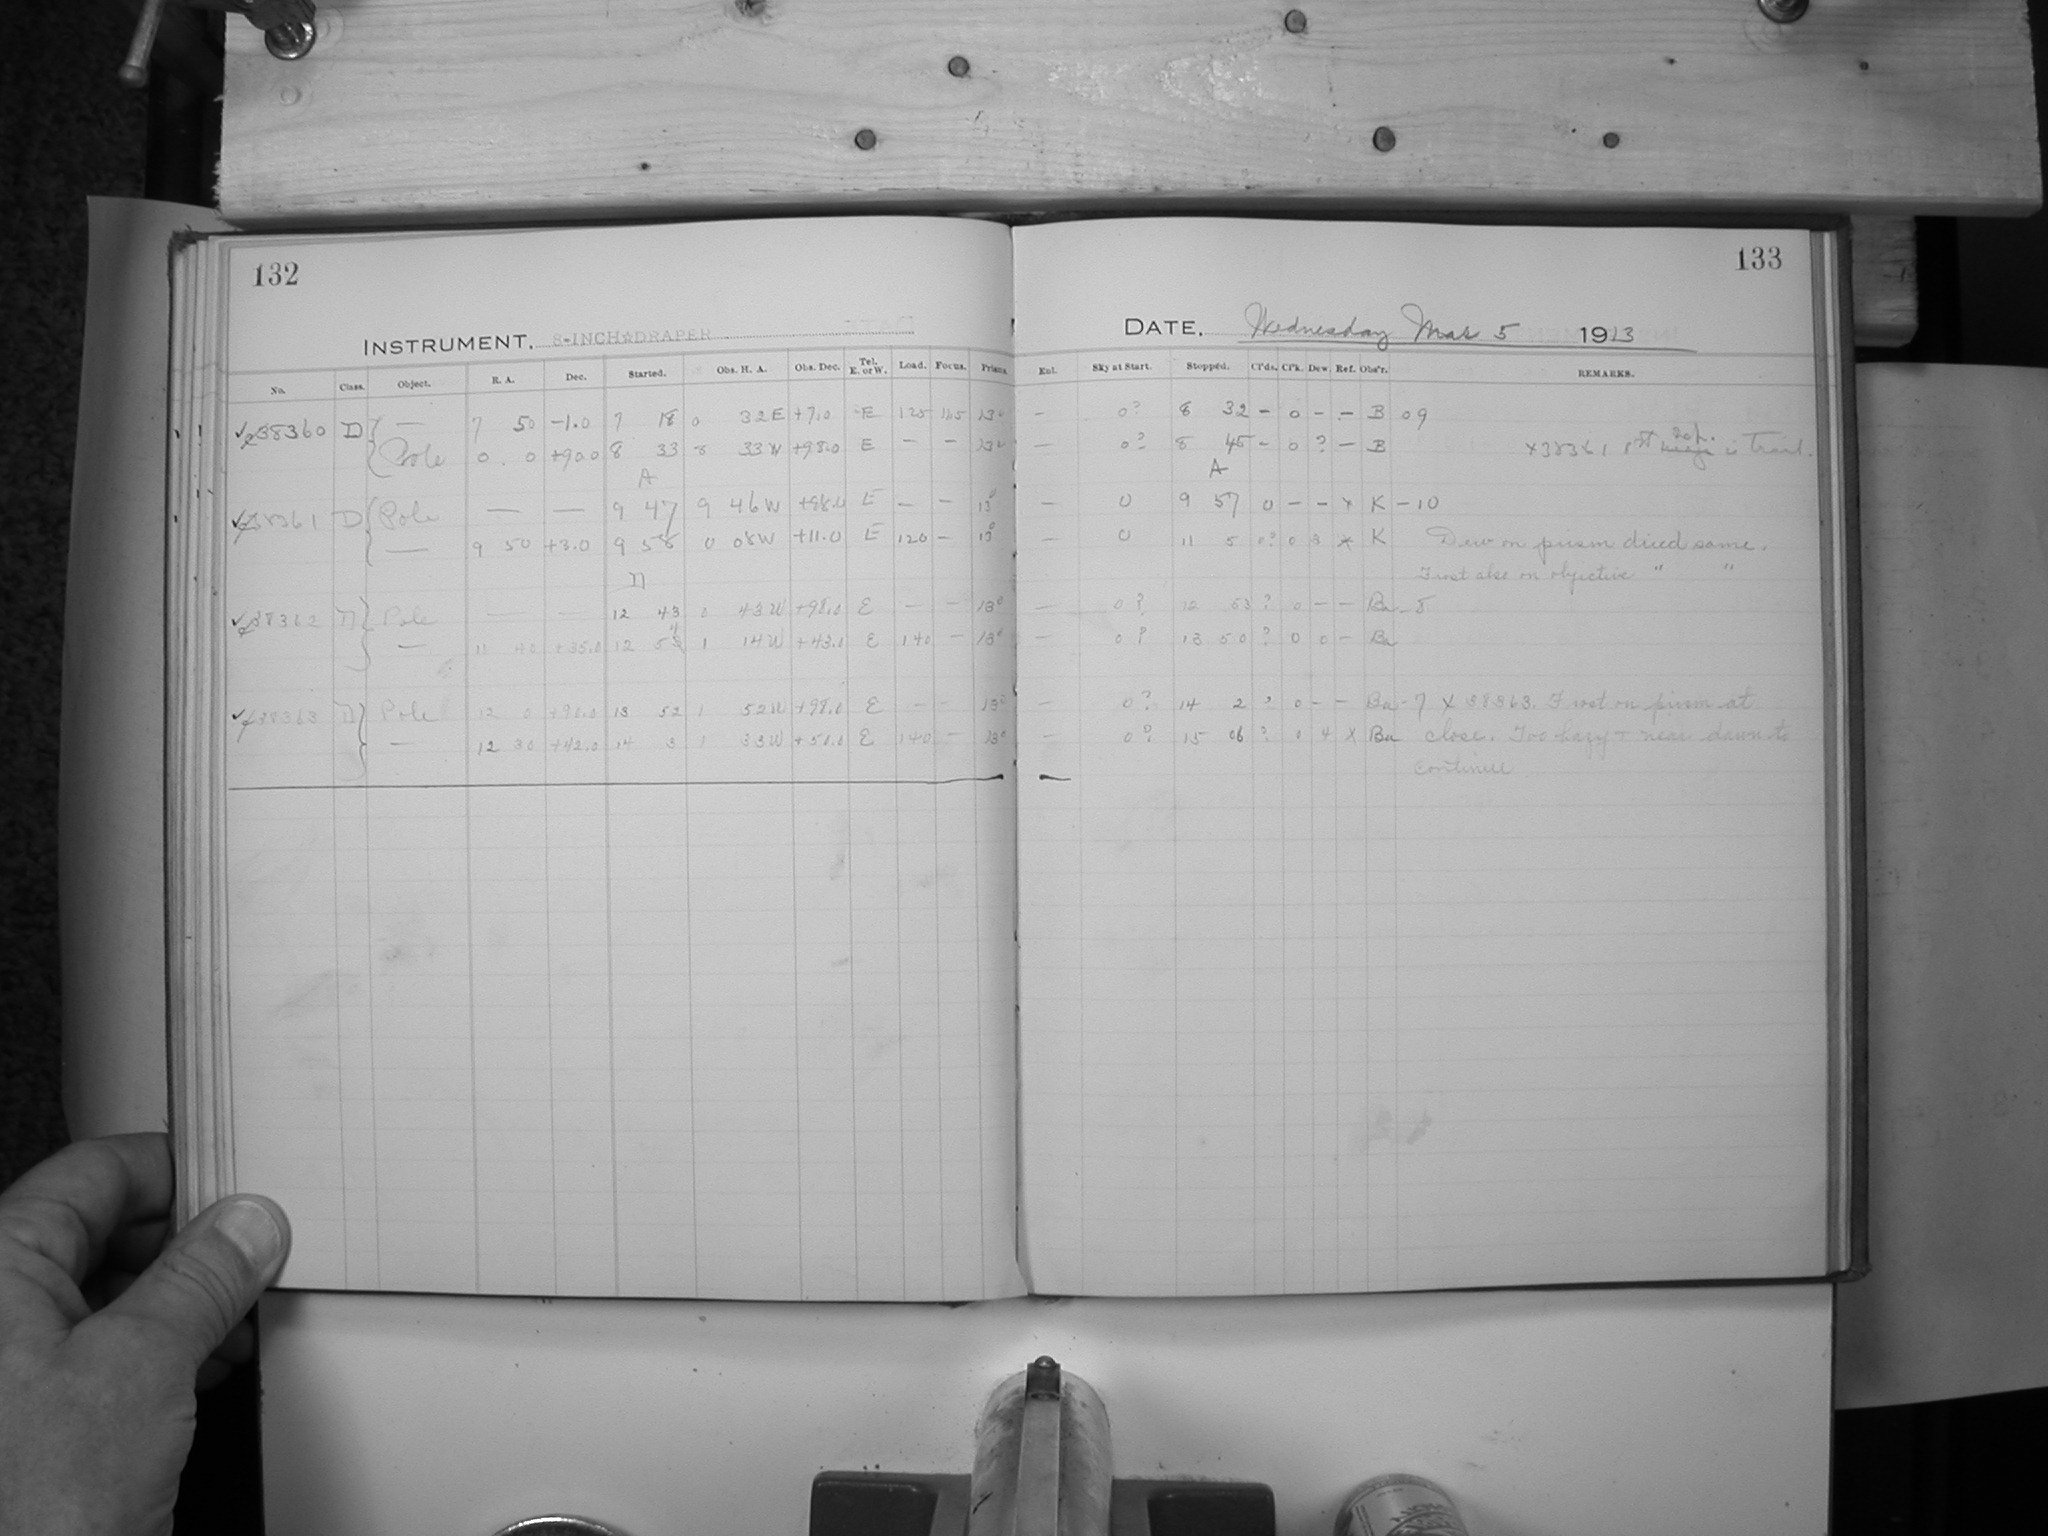 132
INSTRUMENT. 8-INCH DRAPER
No. Class. Object. R. A. Dec. Started. Obs. H. A. Obs. Dec. Tel. E. or W. Load. Focus. Prism.
38360 D — 7 50 -1.0 7 18 0 32E +7.0 E 125 13°
Pole 0 0 +90.0 8 33 8 33W +98.0 E — — 13°
A
38361 D Pole — — 9 47 9 46W +98.0 E — — 13°
— 9 50 +3.0 9 58 0 08W +11.0 E 120 — 13°
38362 D Pole — — 12 43 0 43W +98.0 E — — 13°
— 11 40 +35.0 12 54 1 14W +43.0 E 140 — 13°
38363 D Pole 12 0 +90.0 13 52 1 52W +98.0 E — — 13°
— 12 30 +42.0 14 3 1 33W +50.0 E 140 — 13°
133
DATE. Wednesday Mar 5 1913
Ent. Sky at Start. Stopped. Cl'ds. Cl'k. Dew. Ref. Obs'r. REMARKS.
— 0? 8 32 — 0 — — B 09
— 0? 8 45 — 0 ? — B x38361 1st is trail.
A
— 0 9 57 0 — — x K — 10
— 0 11 5 0? 0 3 x K Dew on prism dried some.
Frost also on objective " "
— 0? 12 53 ? 0 — — Ba — 8
— 0? 13 50 ? 0 0 — Ba
— 0? 14 2 ? 0 — — Ba — 7 x 38363. Frost on prism at
— 0? 15 06 ? 0 4 x Ba close. Too hazy + near dawn to
continue